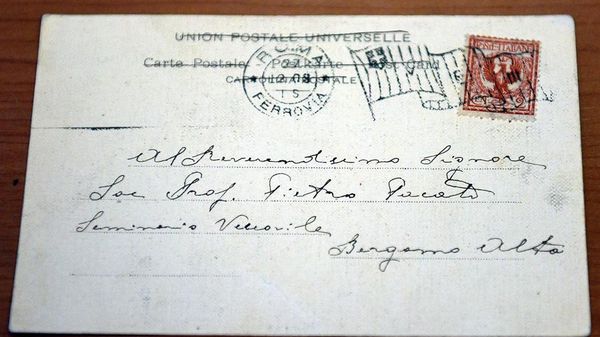 UNION POSTALE UNIVERSELLE
Carte Postale Postkarte Post Card
CARTOLINA POSTALE
ROMA
27
2.08
15
FERROVIA
POSTE ITALIANE
Al Reverendissimo Signore
Sac Prof. Pietro
Seminario Vescovile
Bergamo Alta